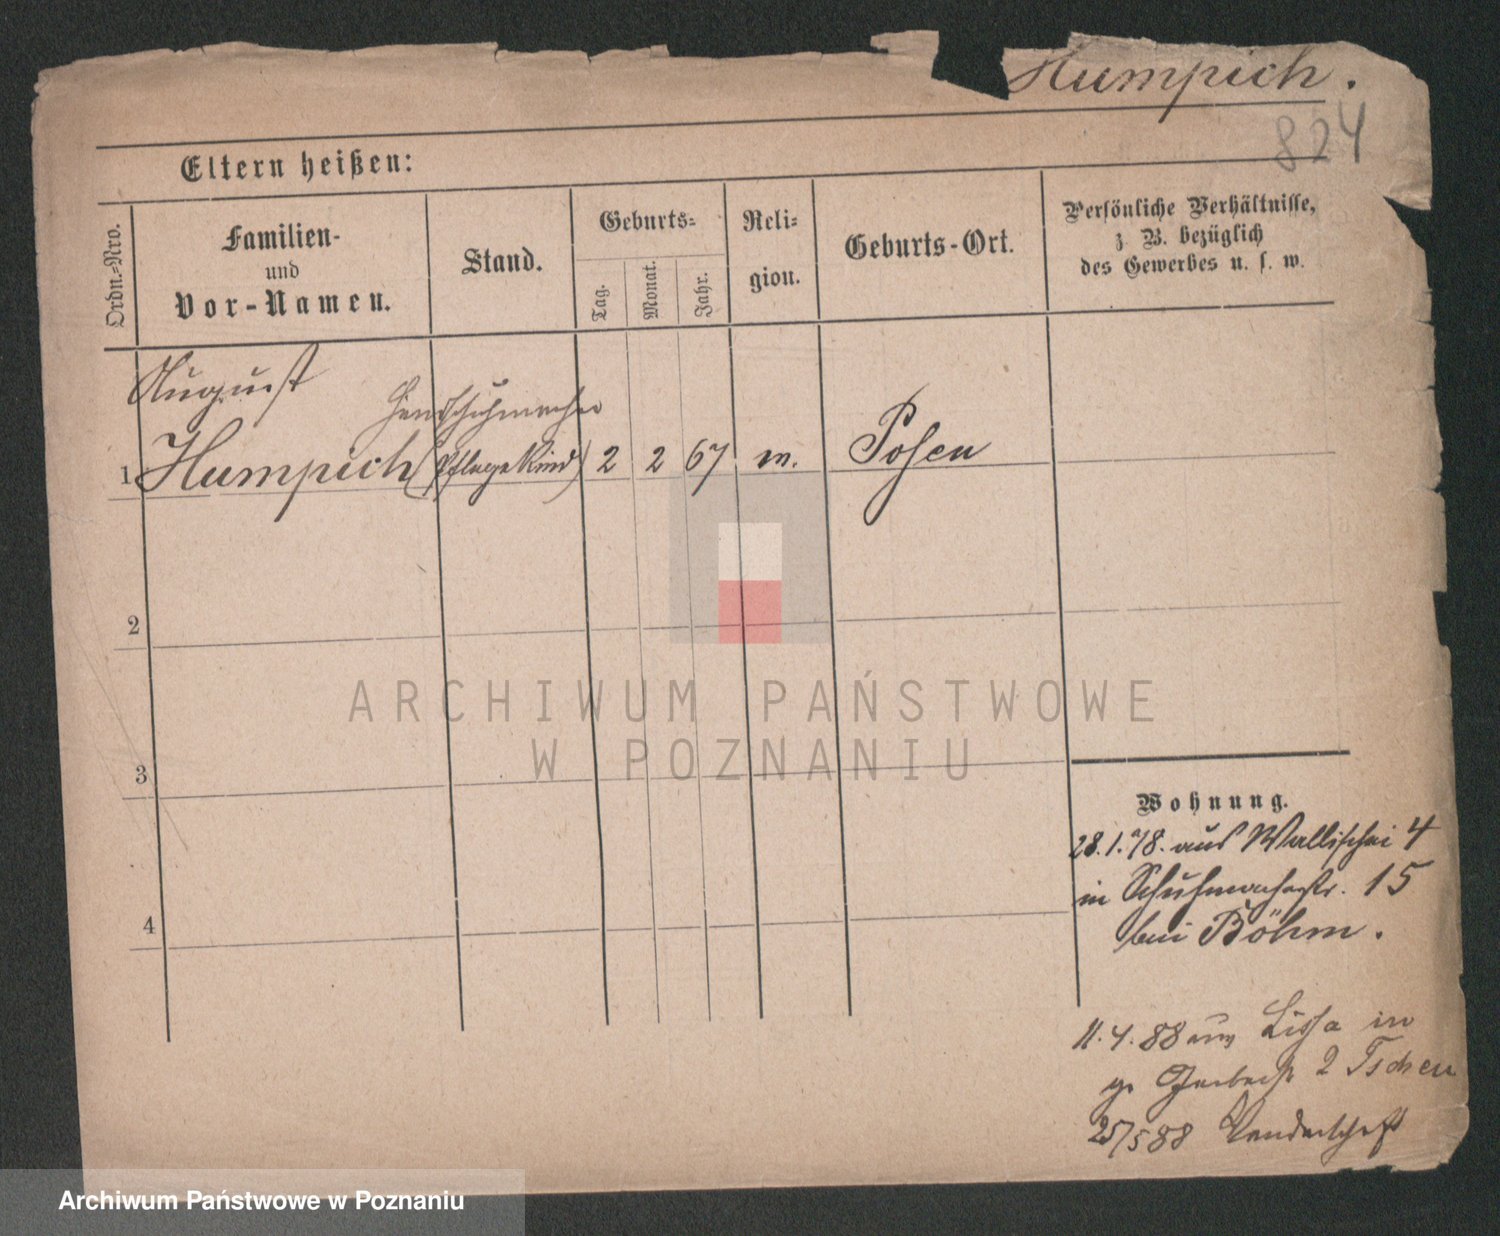 Humpich.
824
Eltern heißen:
Ordn.-Nro.
Familien-
und
Vor-Namen.
Stand.
Geburts-
Tag.
Monat.
Jahr.
Reli-
gion.
Geburts-Ort.
Persönliche Verhältnisse,
z. B. bezüglich
des Gewerbes u. s. w.
August
Handschuhmacher
1 Humpich (Pflegekind) 2 2 67 m. Posen
2
3
4
ARCHIWUM PAŃSTWOWE
W POZNANIU
Wohnung.
28.1.78. aus Wallischei 4
in Schuhmacherstr. 15
bei Böhm.
11.4.88 aus Lissa in
gr Gerberstr 2 Tschen
25/5 88 Wanderschaft
Archiwum Państwowe w Poznaniu